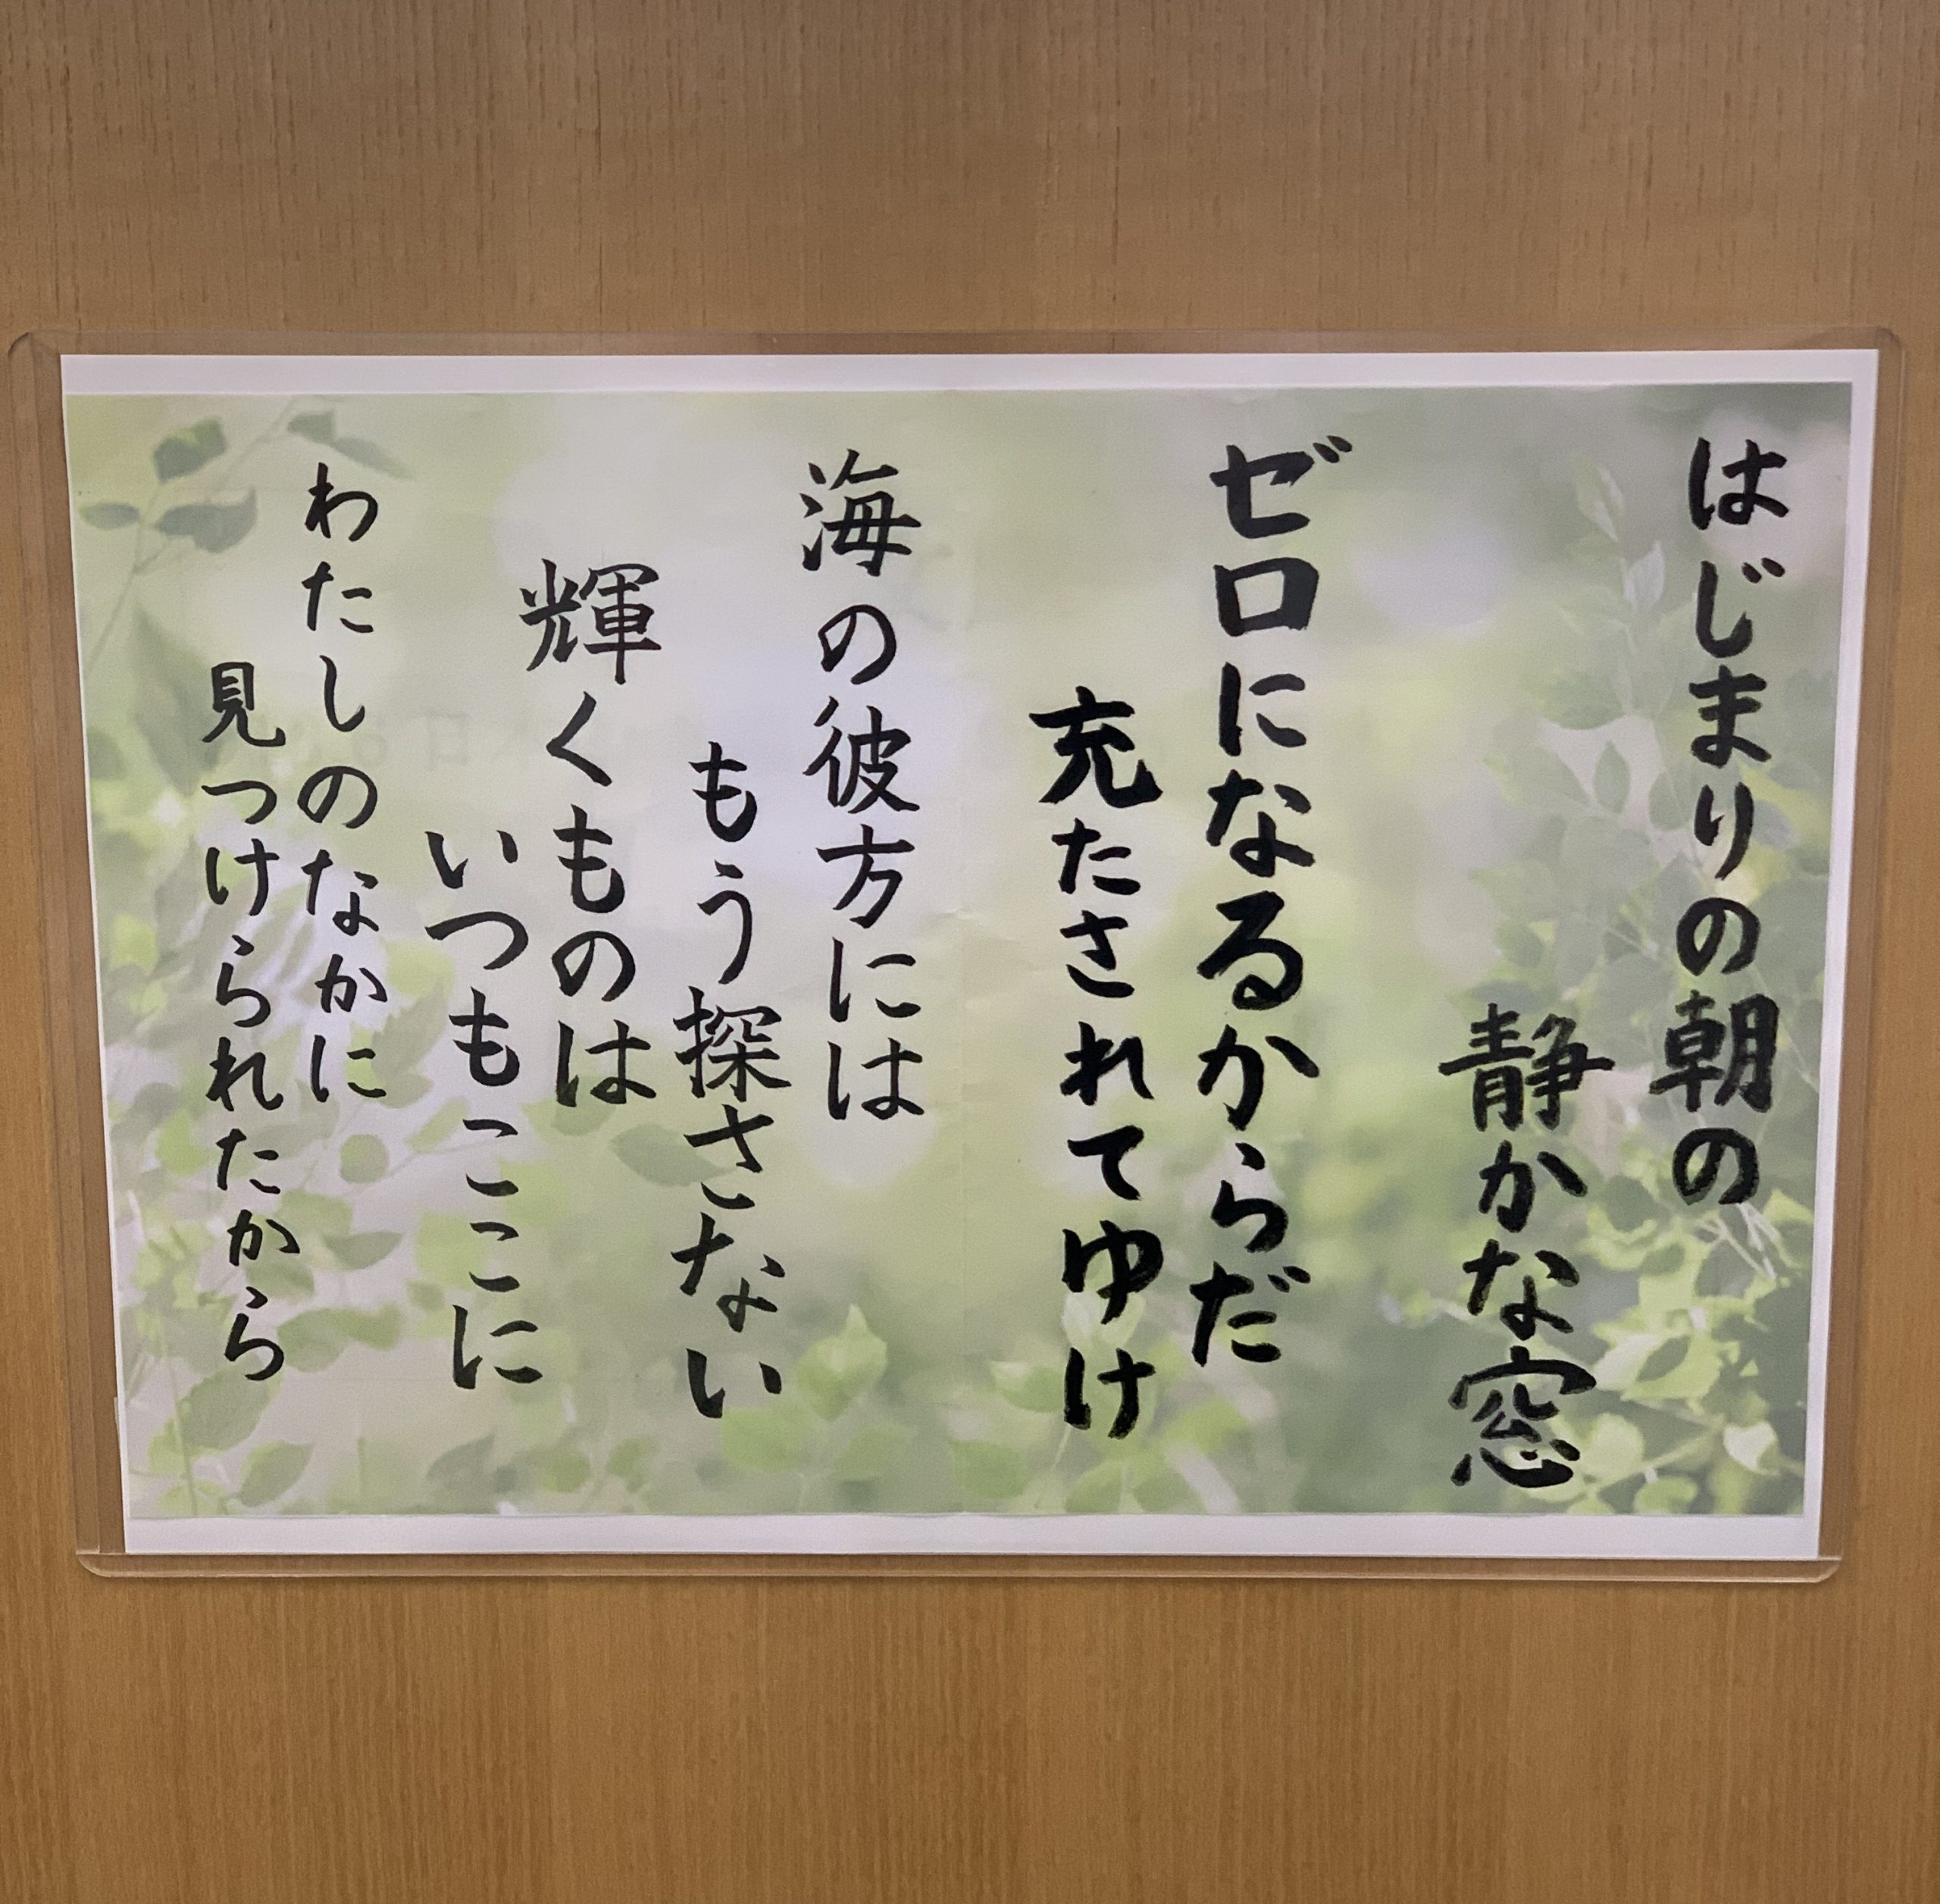 はじまりの朝の
静かな窓
ゼロになるからだ
充たされてゆけ
海の彼方には
もう探さない
輝くものは
いつもここに
わたしのなかに
見つけられたから